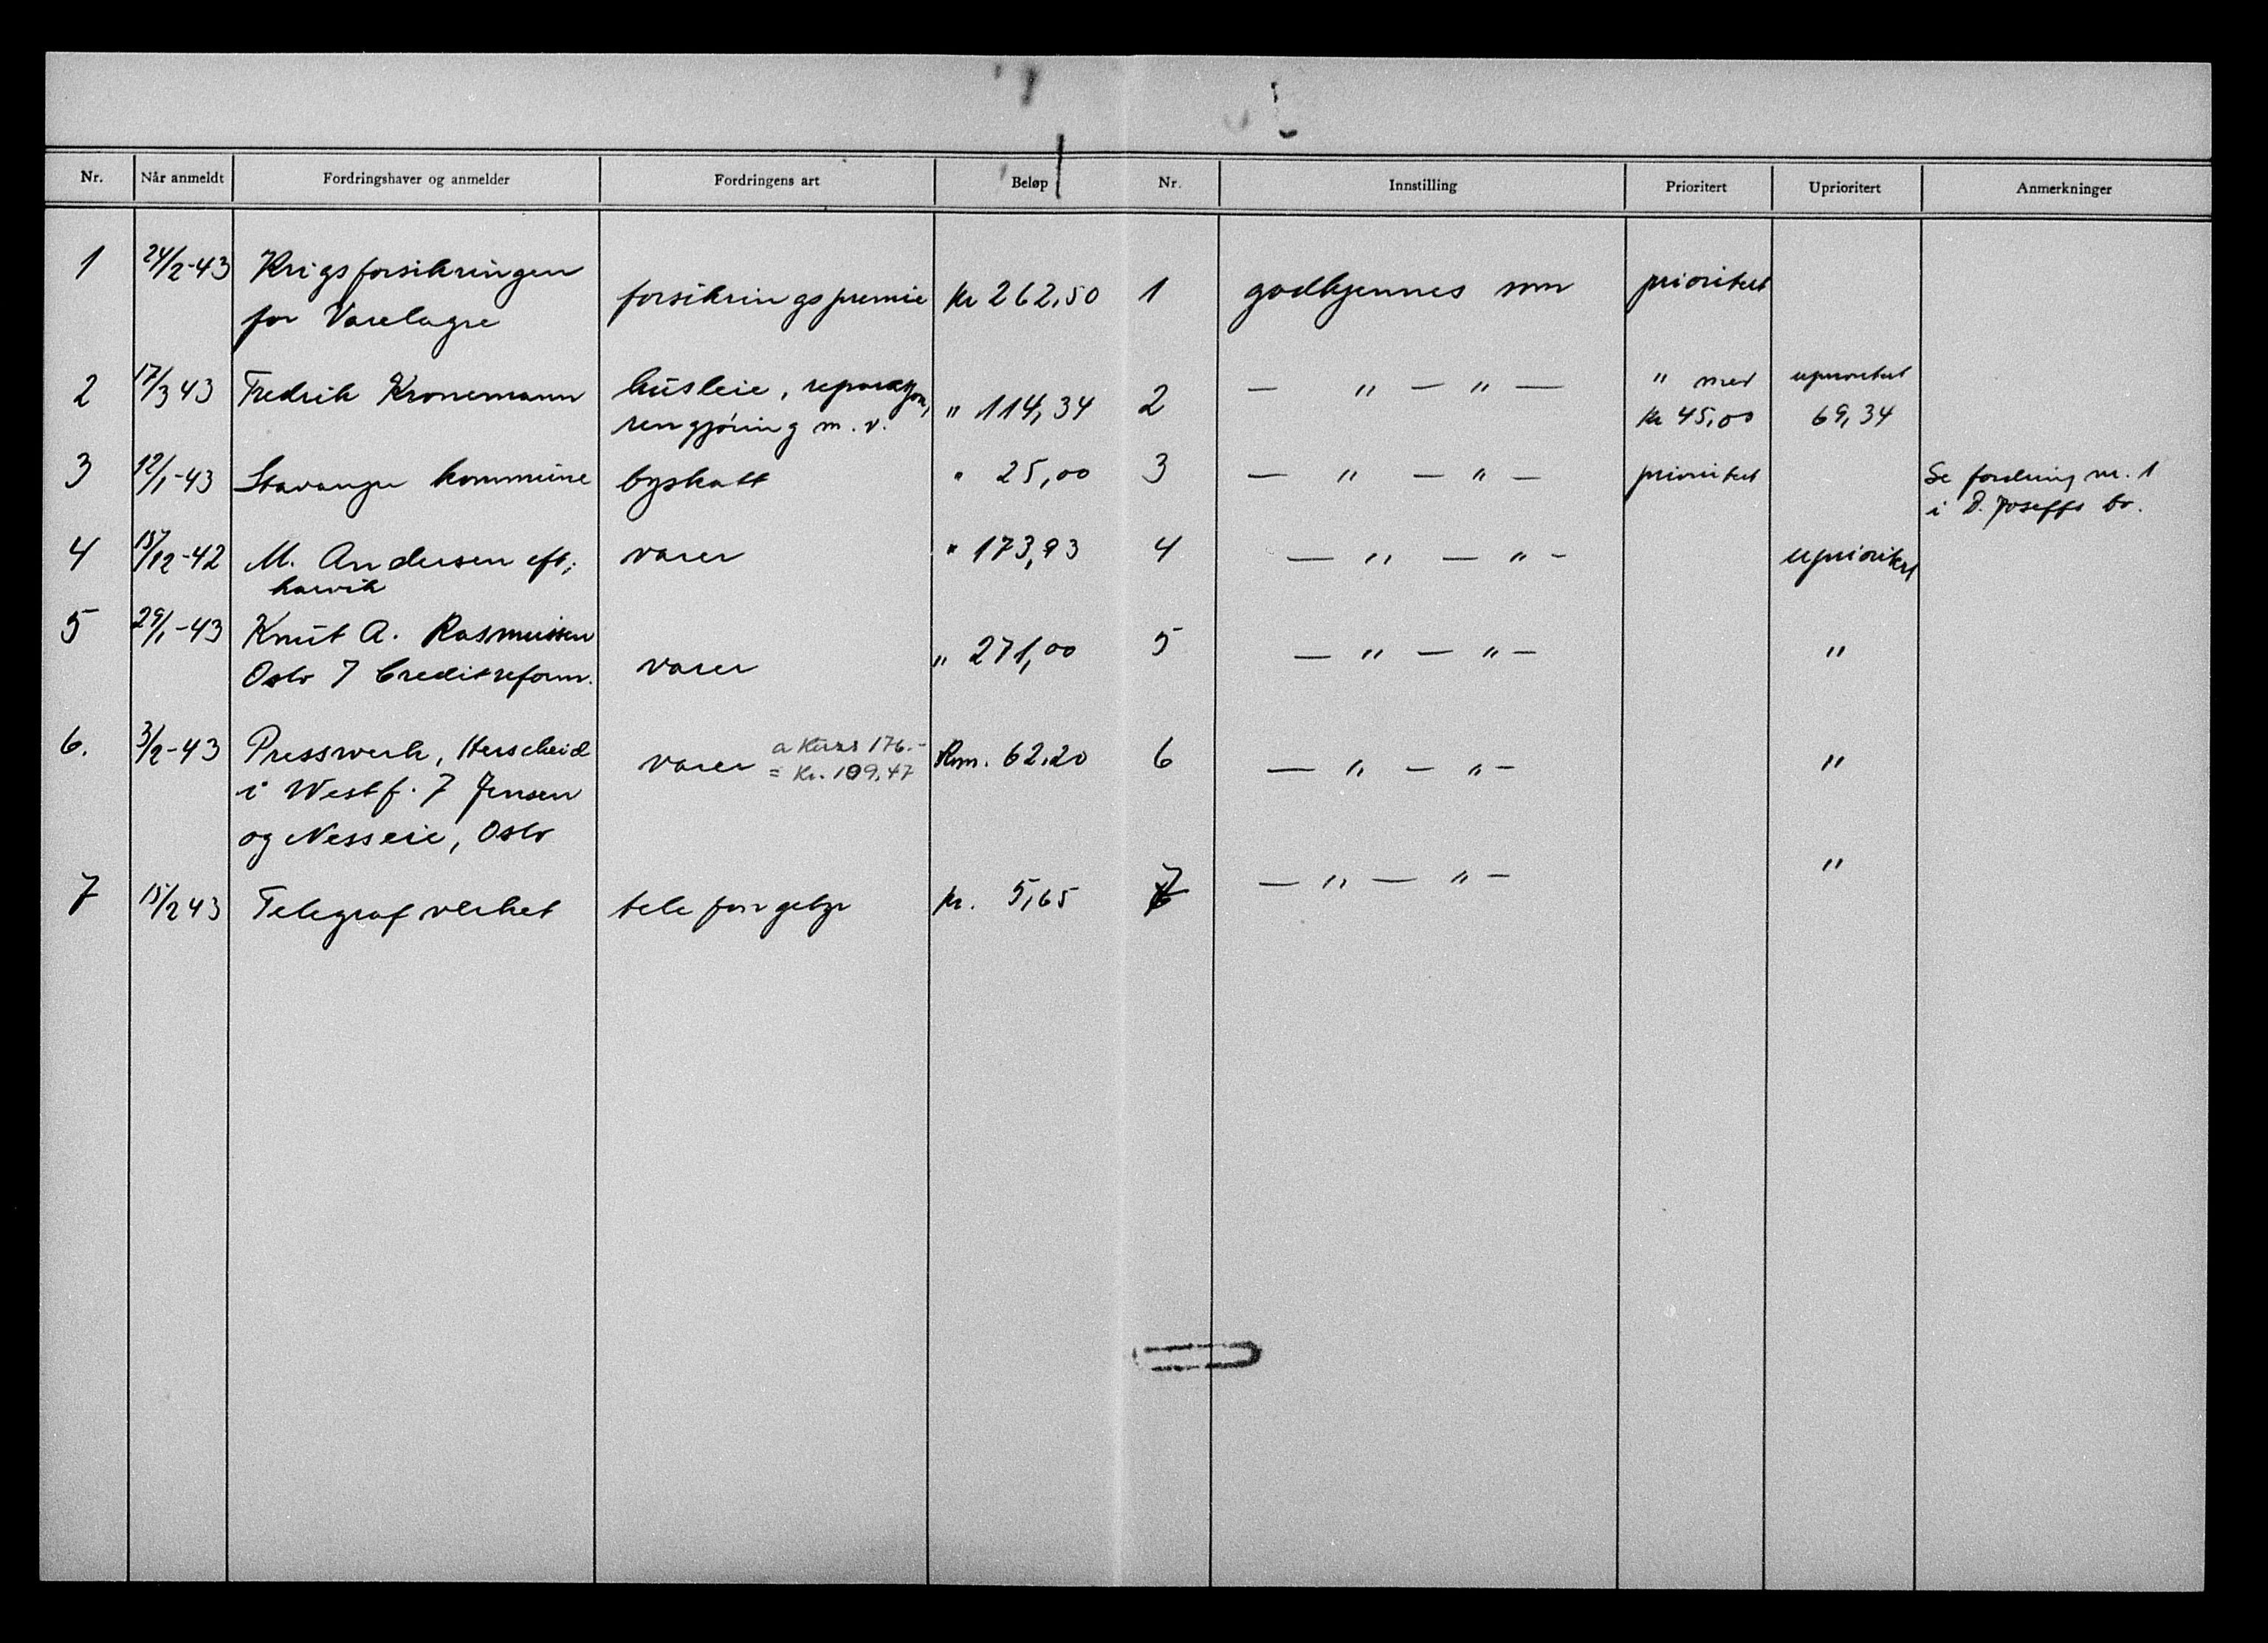 Nr. Når anmeldt Fordringshaver og anmelder Fordringens art Beløp Nr. Innstilling Prioritert Uprioritert Anmerkninger
1 24/2-43 Krigsforsikringen
for Varelagre forsikringspremie Kr 262,50 1 godkjennes som prioritert
2 17/3 43 Fredrik Kronemann husleie, reparasjon, — " — " — " med uprioritert
rengjøring m.v. " 114,34 2 Kr 45,00 69,34
3 12/1-43 Stavanger kommune byskatt " 25,00 3 — " — " — prioritert Se fordring nr. 1
i D. Joseffs bo.
4 15/12-42 M. Andersen eft; varer " 173,93 4 — " — " — uprioritert
5 29/1-43 Knut A. Rasmussen
Oslo 7 Creditreform. varer " 271,00 5 — " — " — "
6. 3/2-43 Presswerk, Herscheid varer a Kurs 176.- Rm. 62,20 6 — " — " — "
= Kr. 109,47
i Westf. 7 Jensen
og Nesseie, Oslo
7 15/2 43 Telegrafverket telefongebyr Kr. 5,65 7 — " — " — "